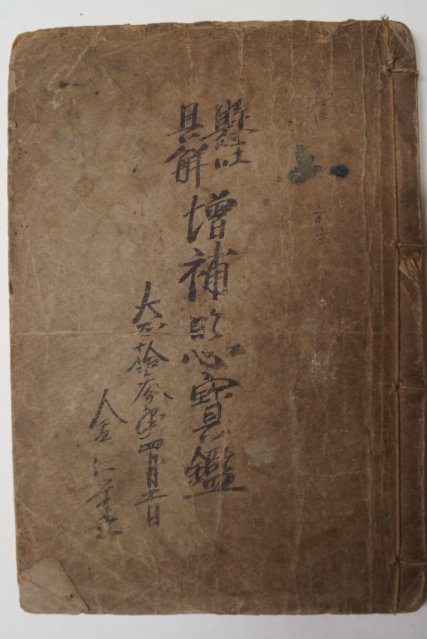 山
懸吐
具解
增補明心寶鑑
大正拾參年四月十一日
金仁